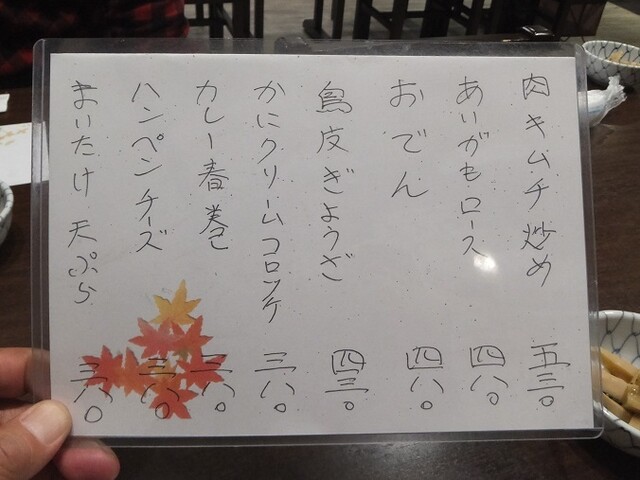 肉キムチ炒め 五三〇
あいがもロース 四八〇
おでん 四八〇
鳥皮ぎょうざ 四三〇
かにクリームコロッケ 三八〇
カレー春巻 三八〇
ハンペンチーズ 三八〇
まいたけ天ぷら 三八〇